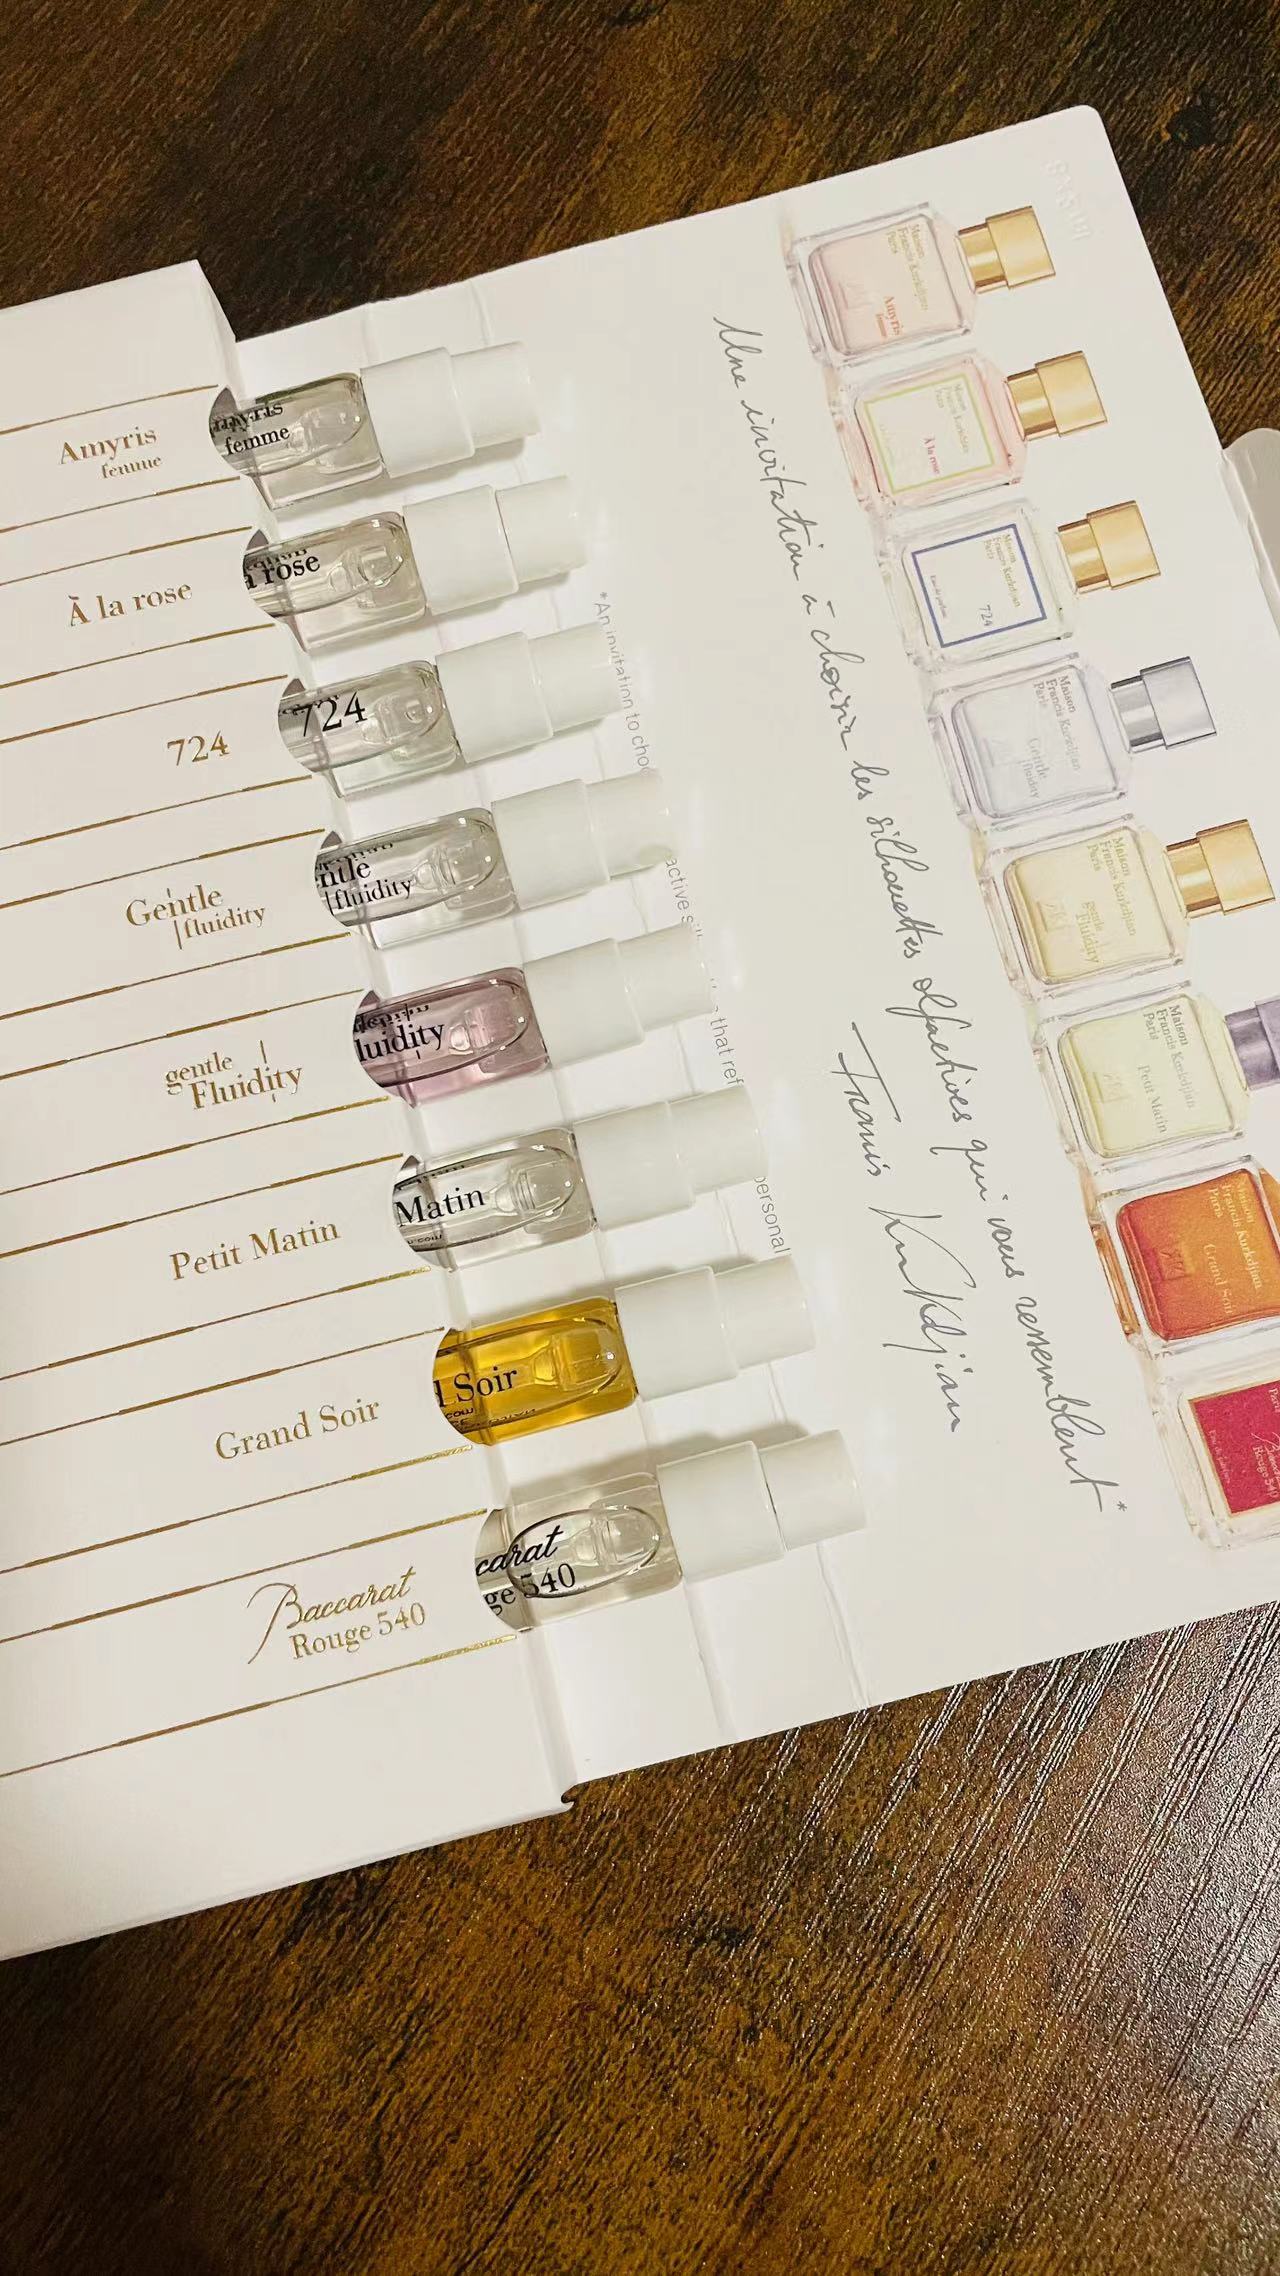 Amyris
femme
À la rose
724
Gentle
fluidity
gentle
Fluidity
Petit Matin
Grand Soir
Baccarat
Rouge 540
amyris
femme
a rose
724
ntle
fluidity
luidity
Matin
d Soir
carat
ge 540
*An invitation to cho
active s
that ref
personal
Une invitation à choisir les silhouettes olfactives qui vous ressemblent*
Francis Kurkdjian
Maison
Francis Kurkdjian
Paris
Amyris
femme
Maison
Francis Kurkdjian
Paris
À la rose
Maison
Francis Kurkdjian
Paris
724
Eau de parfum
Maison
Francis Kurkdjian
Paris
Gentle
fluidity
Maison
Francis Kurkdjian
Paris
gentle
Fluidity
Maison
Francis Kurkdjian
Paris
Petit Matin
Maison
Francis Kurkdjian
Paris
Grand Soir
Paris
Baccarat
Rouge 540
Eau de parfum